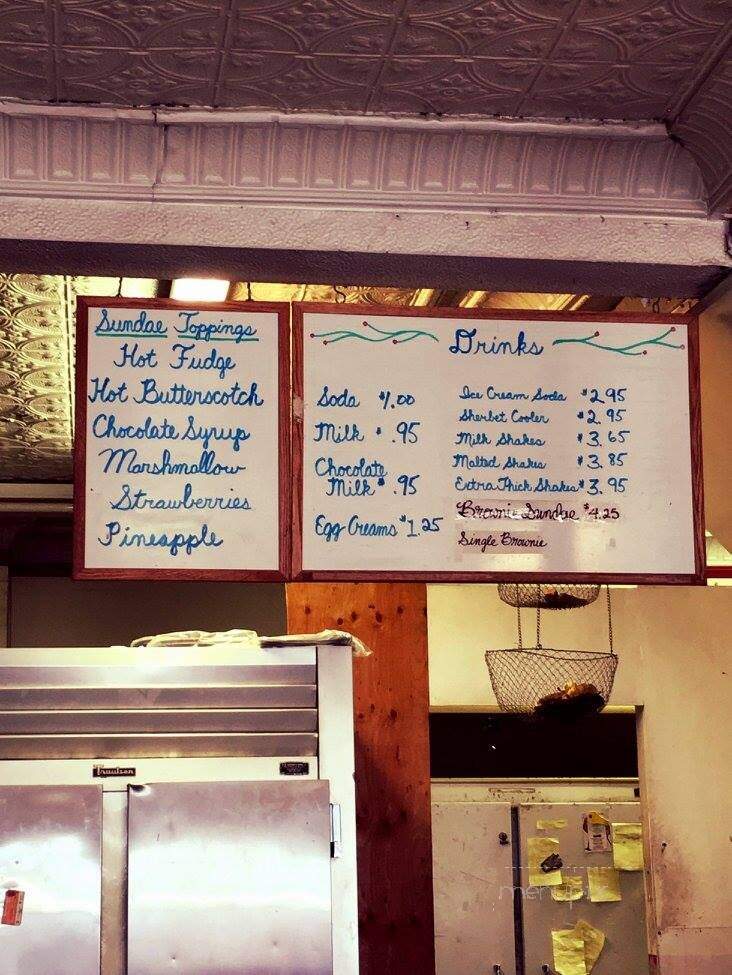 Sundae Toppings
Hot Fudge
Hot Butterscotch
Chocolate Syrup
Marshmallow
Strawberries
Pineapple
Drinks
Soda $1.00
Milk .95
Chocolate
Milk .95
Egg Creams $1.25
Ice Cream Soda $2.95
Sherbet Cooler $2.95
Milk Shakes $3.65
Malted Shakes $3.85
Extra Thick Shakes $3.95
Brownie Sundae $4.25
Single Brownie
Traulsen
menupix